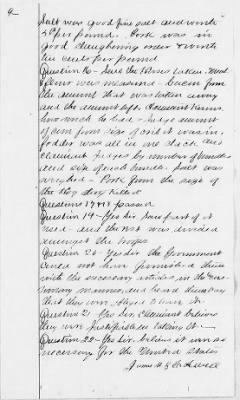 Salt was good fine salt and worth
per pound. Pork was in
good slaughtering order & worth
ten cents per pound
Question 16 - Saw the taken. Meat
& flour was measured - bacon from
the amount that was taken away
and the amount left. Claimant knows
how much he had - Judge amount
of corn from size of crib it was in.
fodder was all in one stack and
claimant judges by number of bundles
and size of each bundle. Salt was
weighed - Pork from the size of
the Hog they killed
Questions 17 & 18 passed
Question 19 - Yes Sir. Saw part of it
used - and the rest was divided
amongst the troops
Question 20 - Yes Sir the Government
could not have furnished them
with the necessary articles in the
manner, and heard them say
that they were obliged to have it.
Question 21 - Yes Sir. Claimant believes
they were justifiable in taking it -
Question 22 - Yes Sir. believes it was so
necessary for the United States